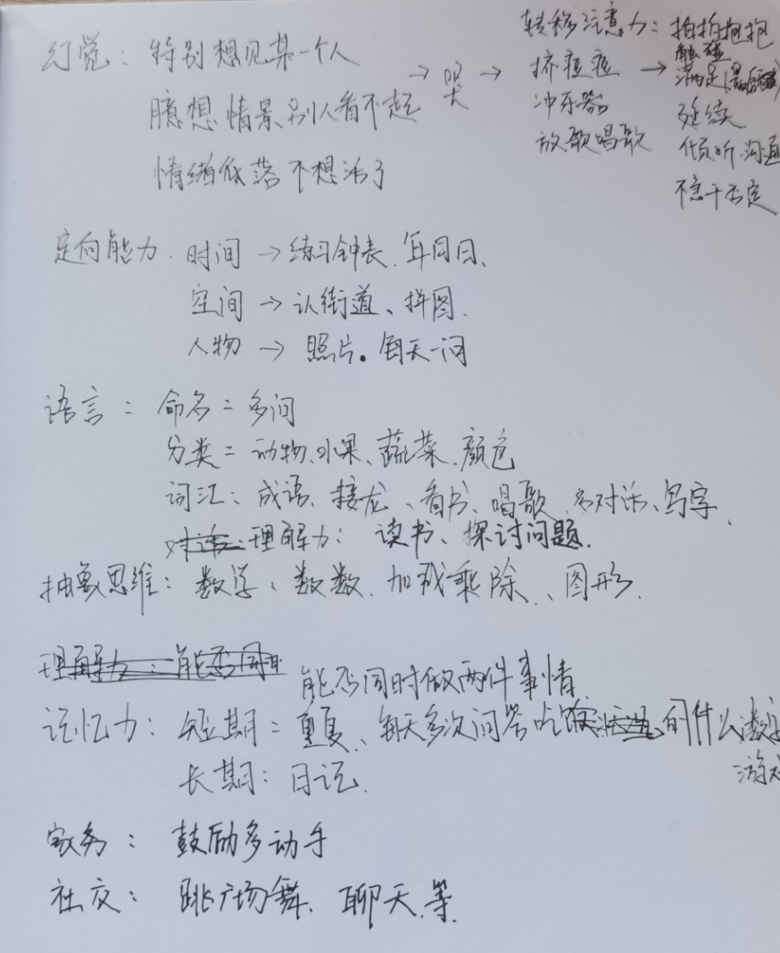 幻觉：特别想见某一个人
臆想情景别人看不起 → 哭 →
情绪低落 不想活了
转移注意力：拍拍抱抱
挤痘痘 → 触碰
冲乐器 满足
放歌唱歌 延续
倾听.沟通
不急于否定
定向能力. 时间 → 练习钟表. 年月日、
空间 → 认街道、拼图.
人物 → 照片。每天一问
语言： 命名= 多问
分类= 动物、水果、蔬菜.颜色
词汇：成语、接龙、看书、唱歌、多对话、写字.
理解力： 读书、探讨问题.
抽象思维：数学、数数.加减乘除、图形.
能否同时做两件事情
记忆力： 短期= 重复、每天多次问答吃饭的什么 数字
游戏
长期：日记.
家务： 鼓励多动手
社交： 跳广场舞、聊天.等.